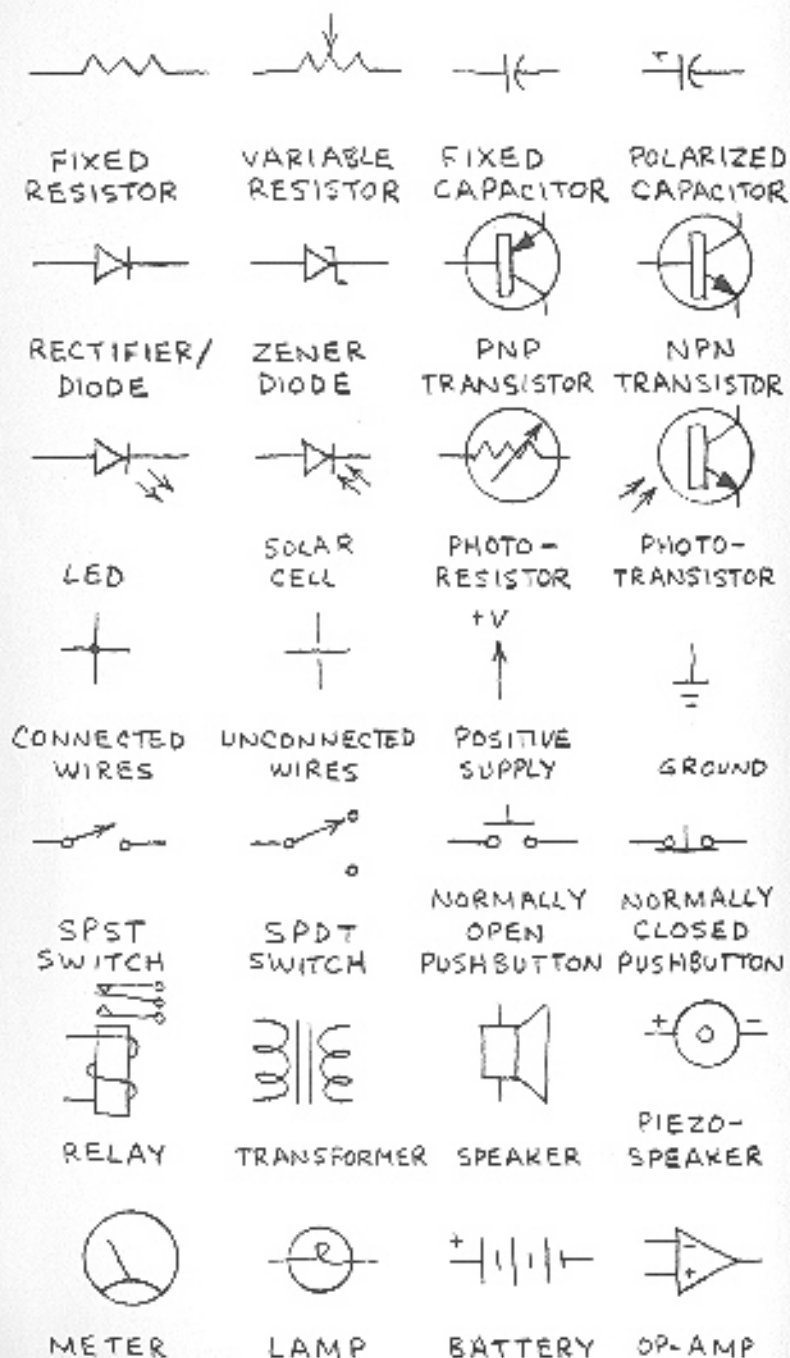 +
FIXED RESISTOR
VARIABLE RESISTOR
FIXED CAPACITOR
POLARIZED CAPACITOR
RECTIFIER/ DIODE
ZENER DIODE
PNP TRANSISTOR
NPN TRANSISTOR
LED
SOLAR CELL
PHOTO- RESISTOR
PHOTO- TRANSISTOR
+V
CONNECTED WIRES
UNCONNECTED WIRES
POSITIVE SUPPLY
GROUND
SPST SWITCH
SPDT SWITCH
NORMALLY OPEN PUSHBUTTON
NORMALLY CLOSED PUSHBUTTON
+ -
RELAY
TRANSFORMER
SPEAKER
PIEZO- SPEAKER
+
- +
METER
LAMP
BATTERY
OP-AMP